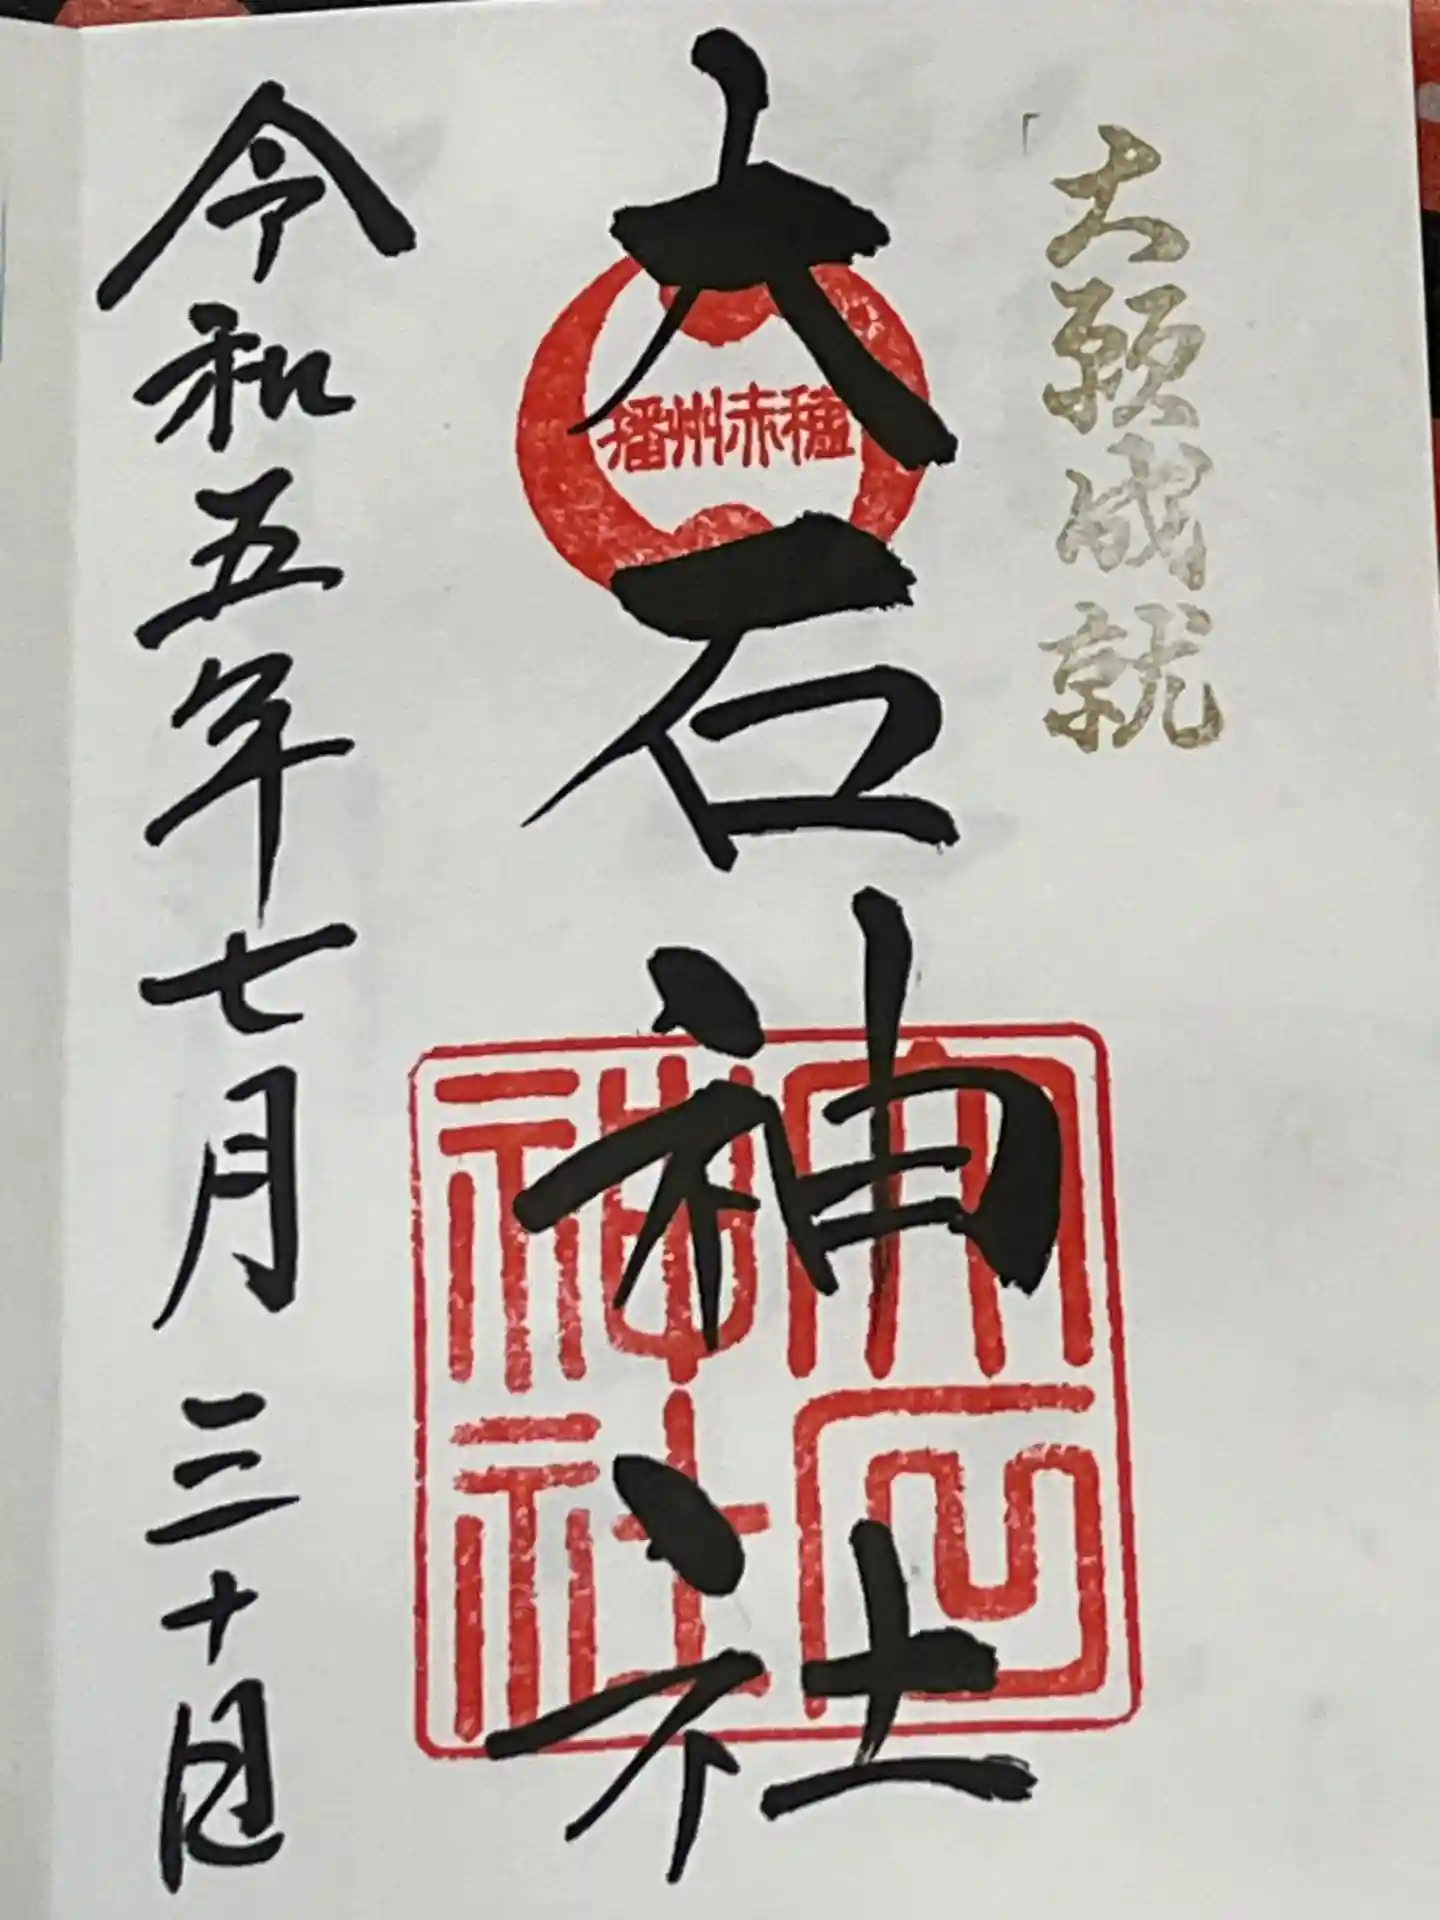 大願成就
大石神社
播州赤穂
大石神社
令和五年七月三十日